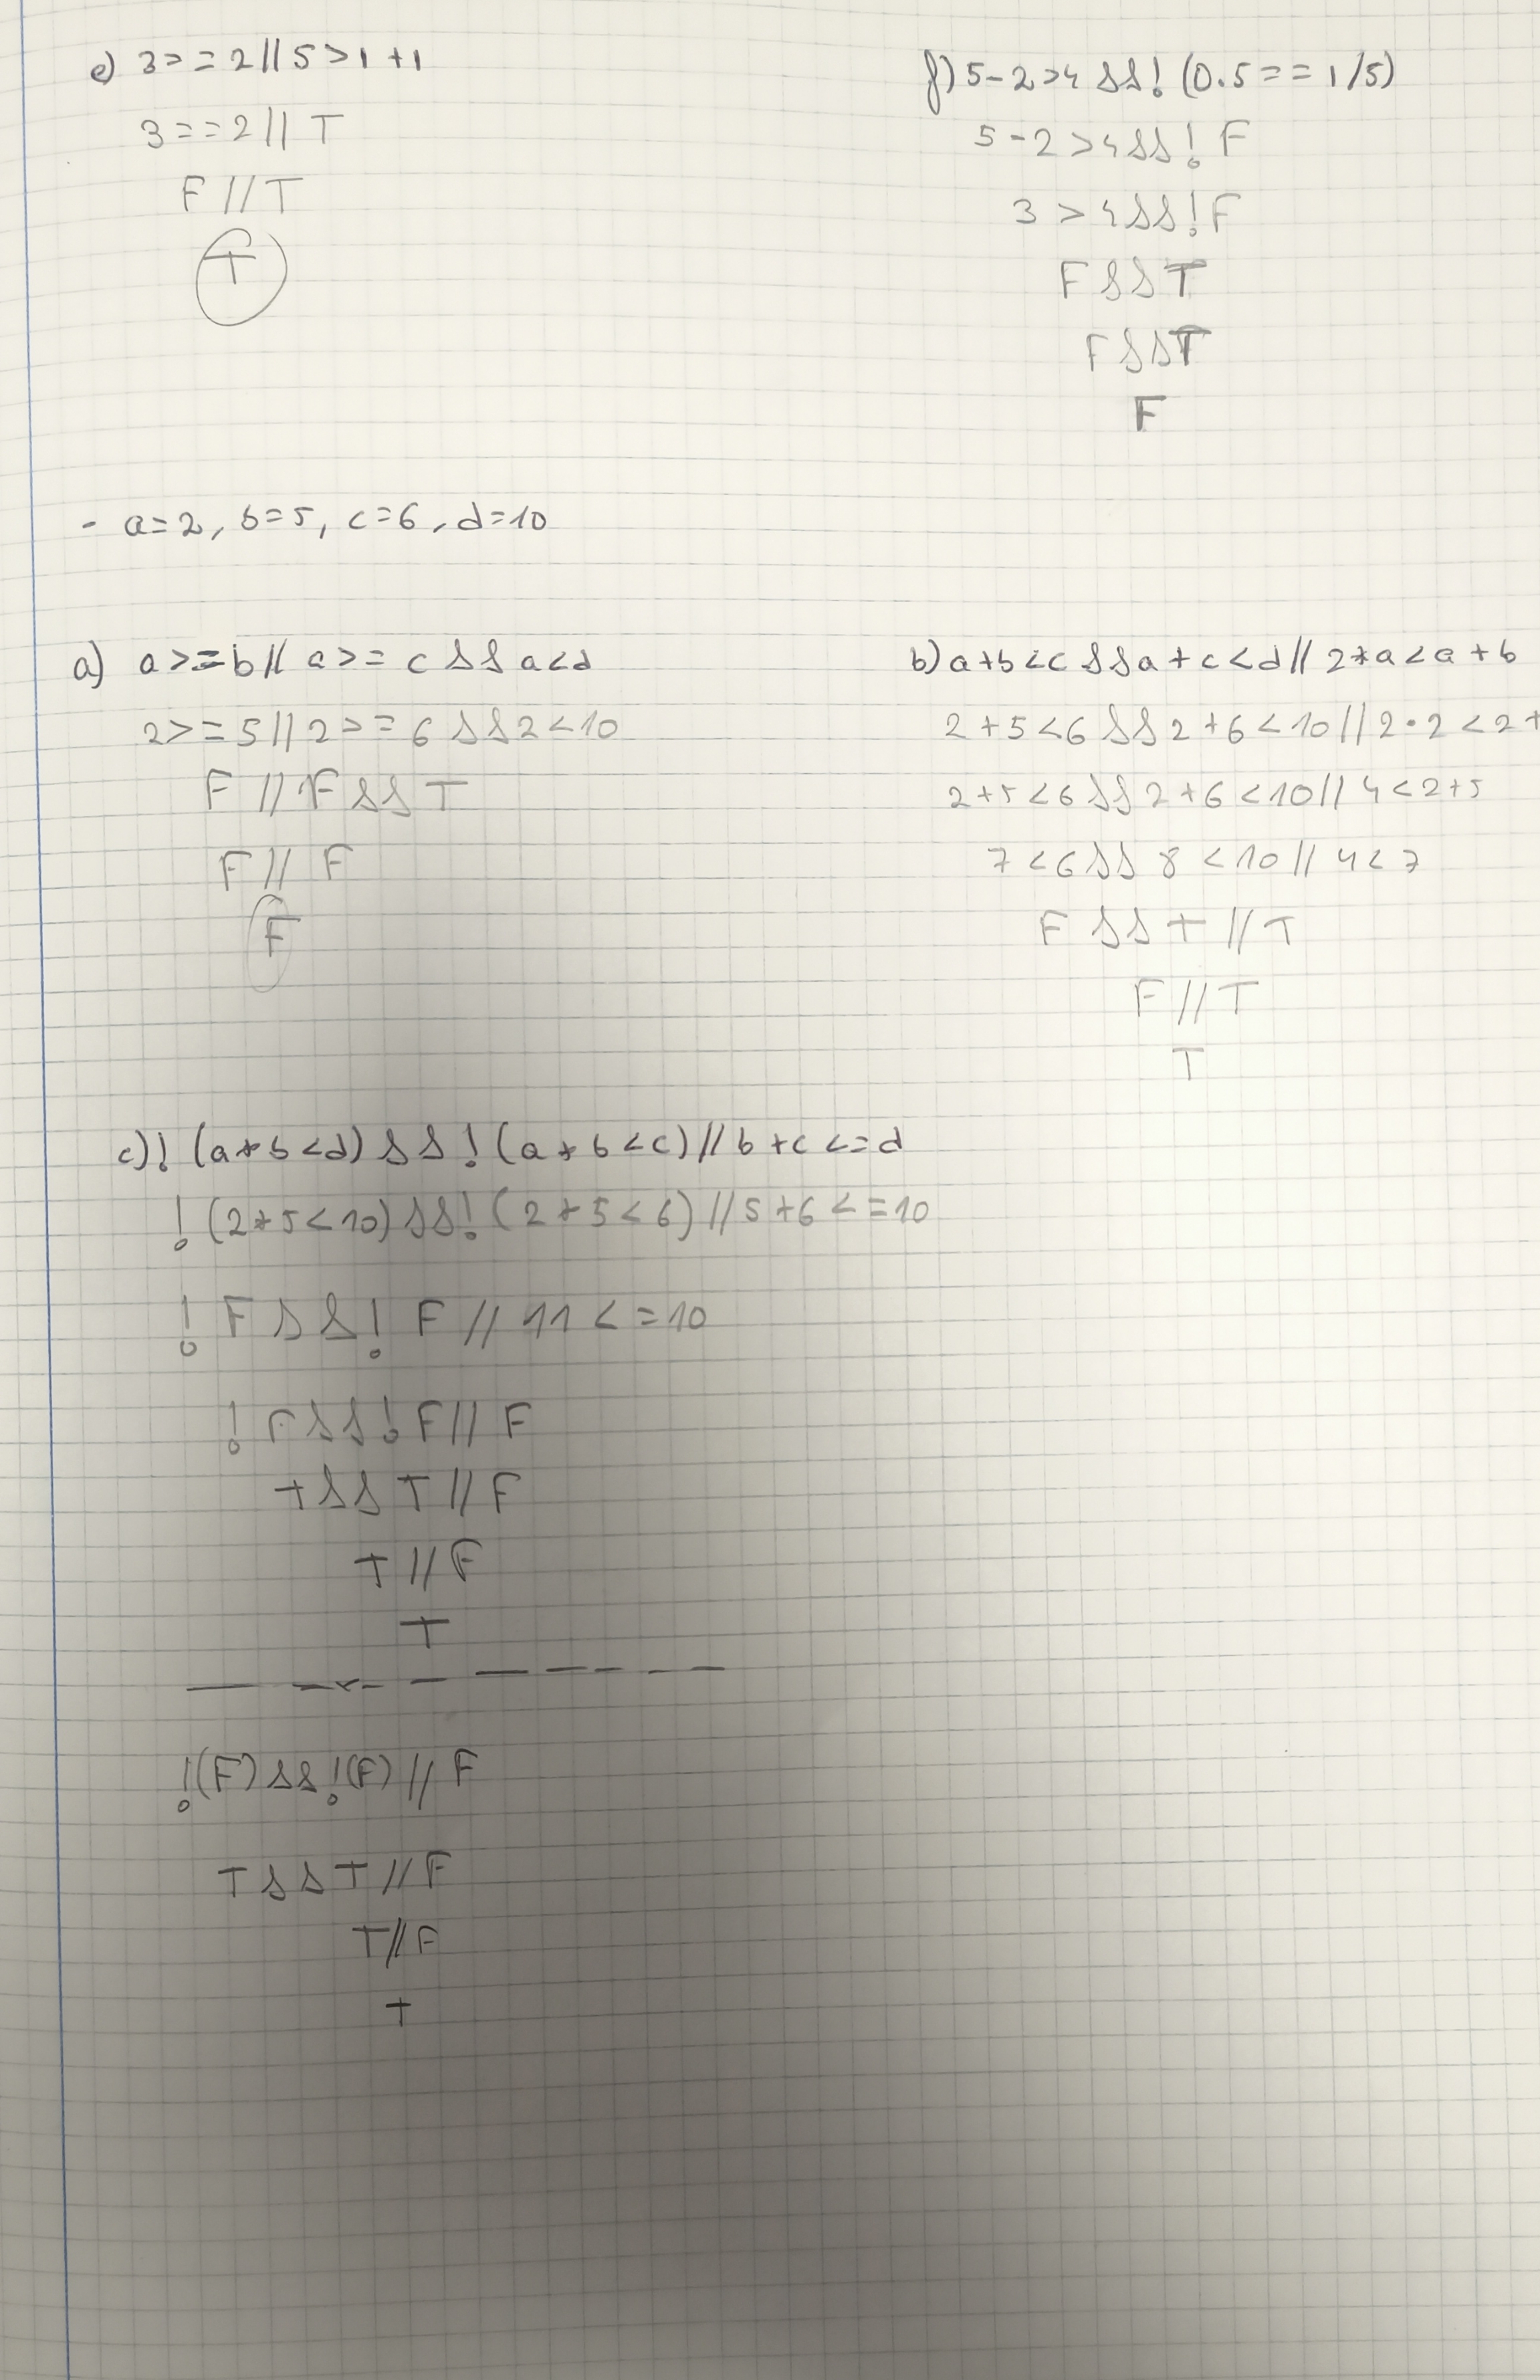 e) 3>=2 || 5>1+1
3==2 || T
F || T
T
f) 5-2>4 && !(0.5==1/5)
5-2>4 && !F
3>4 && !F
F && T
F && T
F
- a=2, b=5, c=6, d=10
a) a>=b || a>=c && a<d
2>=5 || 2>=6 && 2<10
F || F && T
F || F
F
b) a+b<c && a+c<d || 2*a<a+b
2+5<6 && 2+6<10 || 2·2<2+
2+5<6 && 2+6<10 || 4<2+5
7<6 && 8<10 || 4<7
F && T || T
F || T
T
c) !(a*b<d) && !(a*b<c) || b+c<=d
!(2*5<10) && !(2*5<6) || 5+6<=10
!F && !F || 11<=10
!F && !F || F
T && T || F
T || F
T
!(F) && !(F) || F
T && T || F
T || F
T